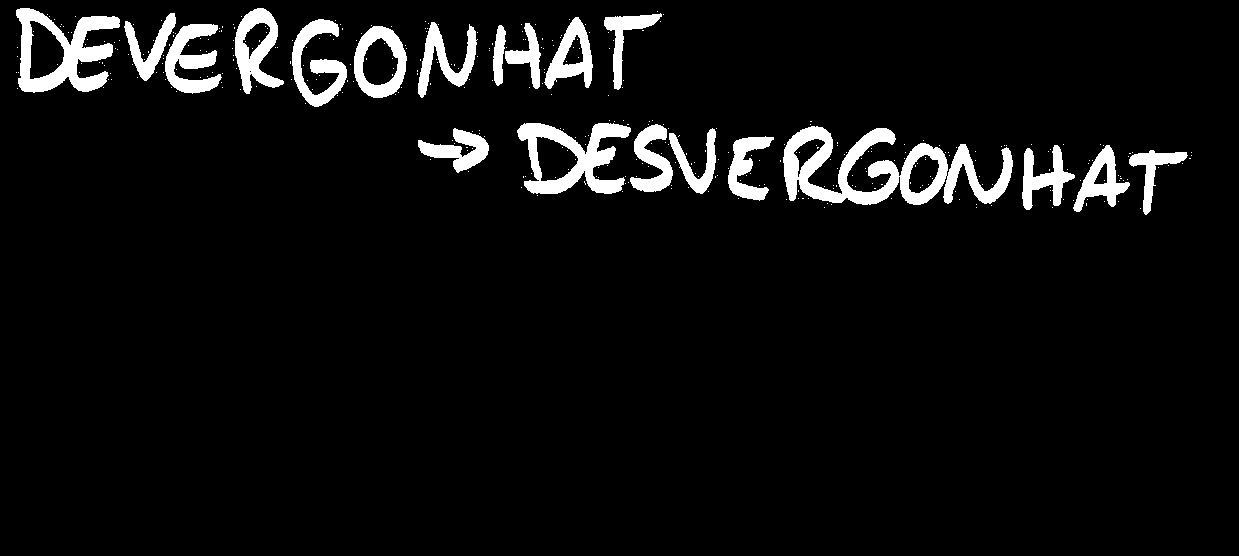 DEVERGONHAT
→ DESVERGONHAT